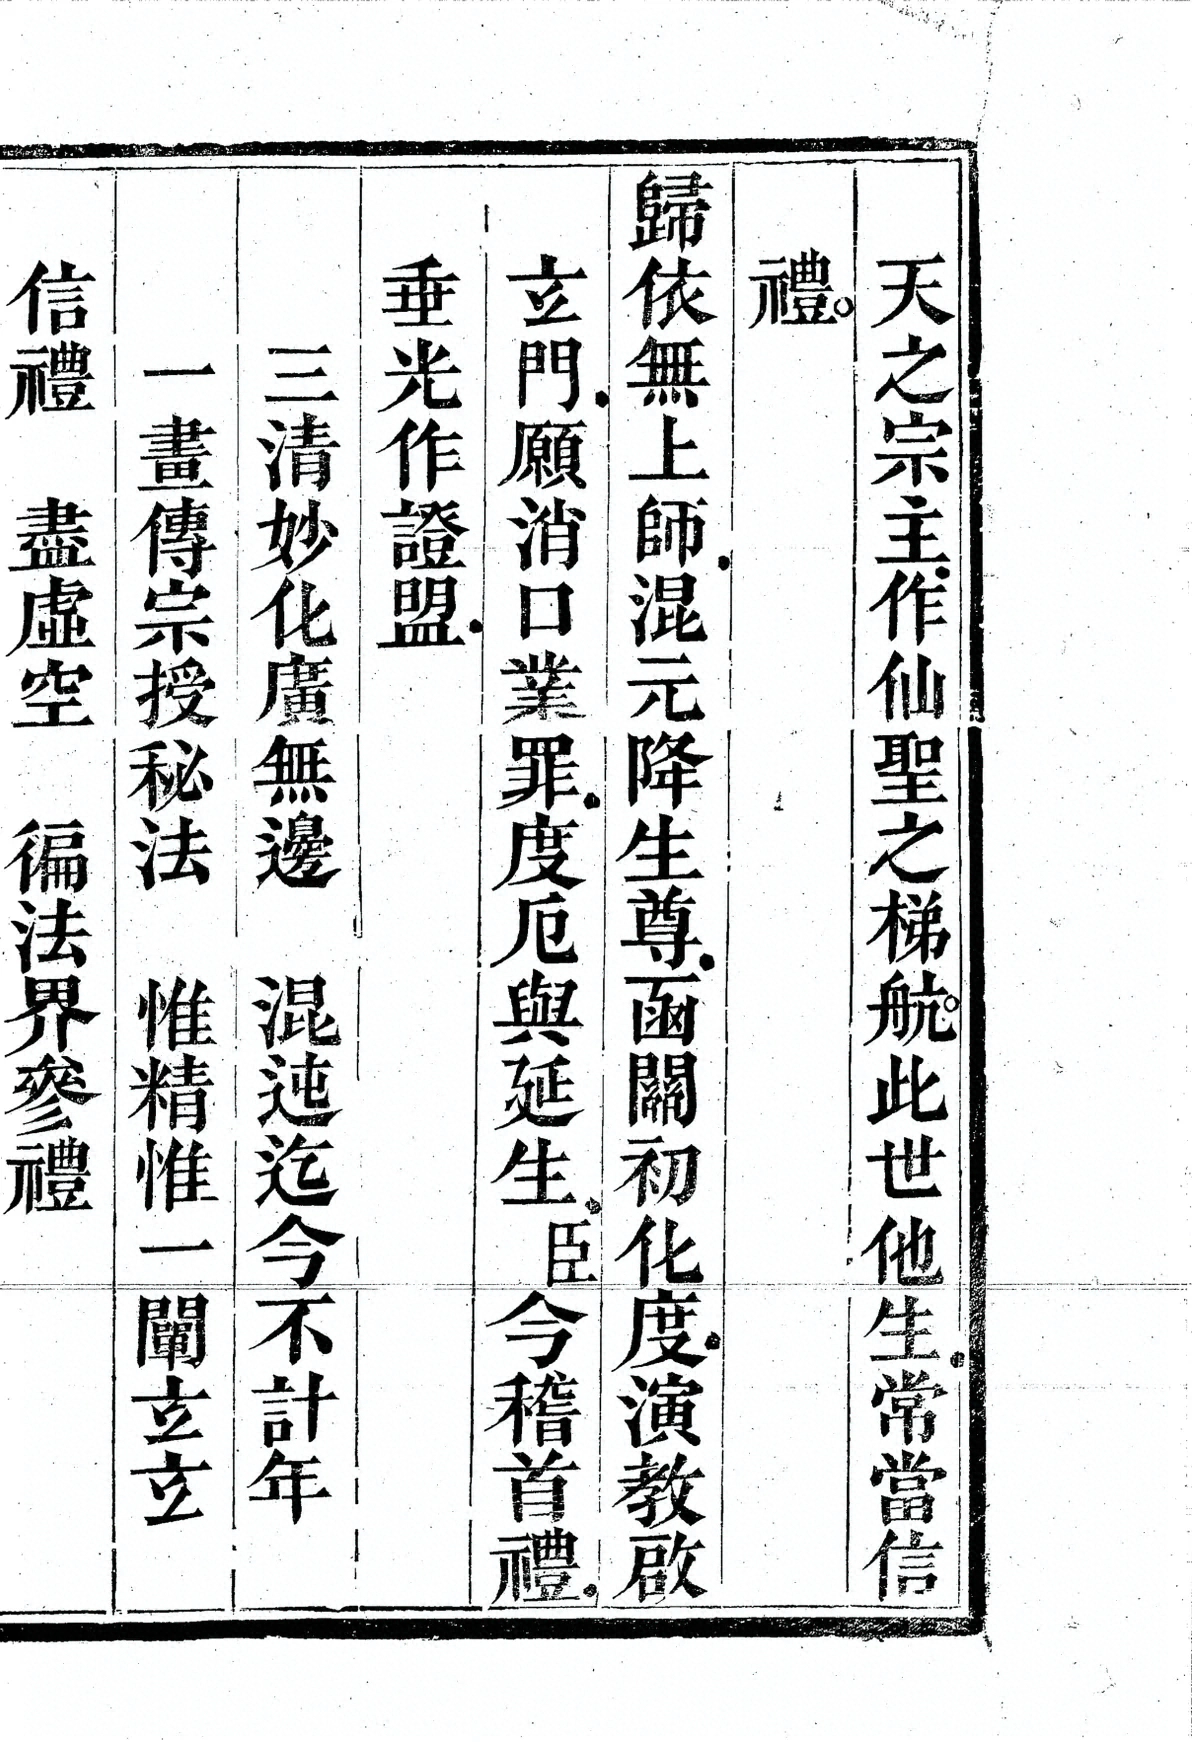 天之宗主．作仙聖之梯航。此世他生．常當信
禮。
歸依無上師．混元降生尊．函關初化度．演教啟
玄門．願消口業罪．度厄與延生．臣今稽首禮．
垂光作證盟．
三清妙化廣無邊　混沌迄今不計年
一畫傳宗授秘法　惟精惟一闡玄玄
信禮　盡虛空　徧法界參禮